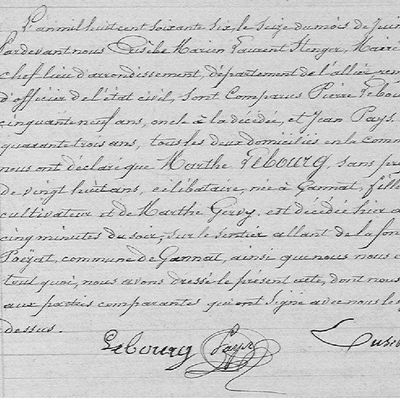 L'an mil huit cent soixante six, le seize du mois de Juin
Pardevant nous Eusèbe Marien Laurent Stenger, Maire
chef lieu d'arrondissement, département de l'allier rem
d'officier de l'état civil, sont comparus Pierre Lebou
cinquante neuf ans, oncle à la décédée, et Jean Pays
quarante trois ans, tous les deux domiciliés en la Comm
nous ont déclaré que Marthe Lebourg, sans pro
de vingt huit ans, célibataire, née à Gannat, fille
cultivateur et de Marthe Gervy, est décédée hier a
cinq minutes du soir, sur le sentier allant de la fon
commune de Gannat, ainsi que nous
tout quoi, nous avons dressé le présent acte, dont nous
aux parties comparantes qui ont signé avec nous les
dessus.
Lebourg Pays